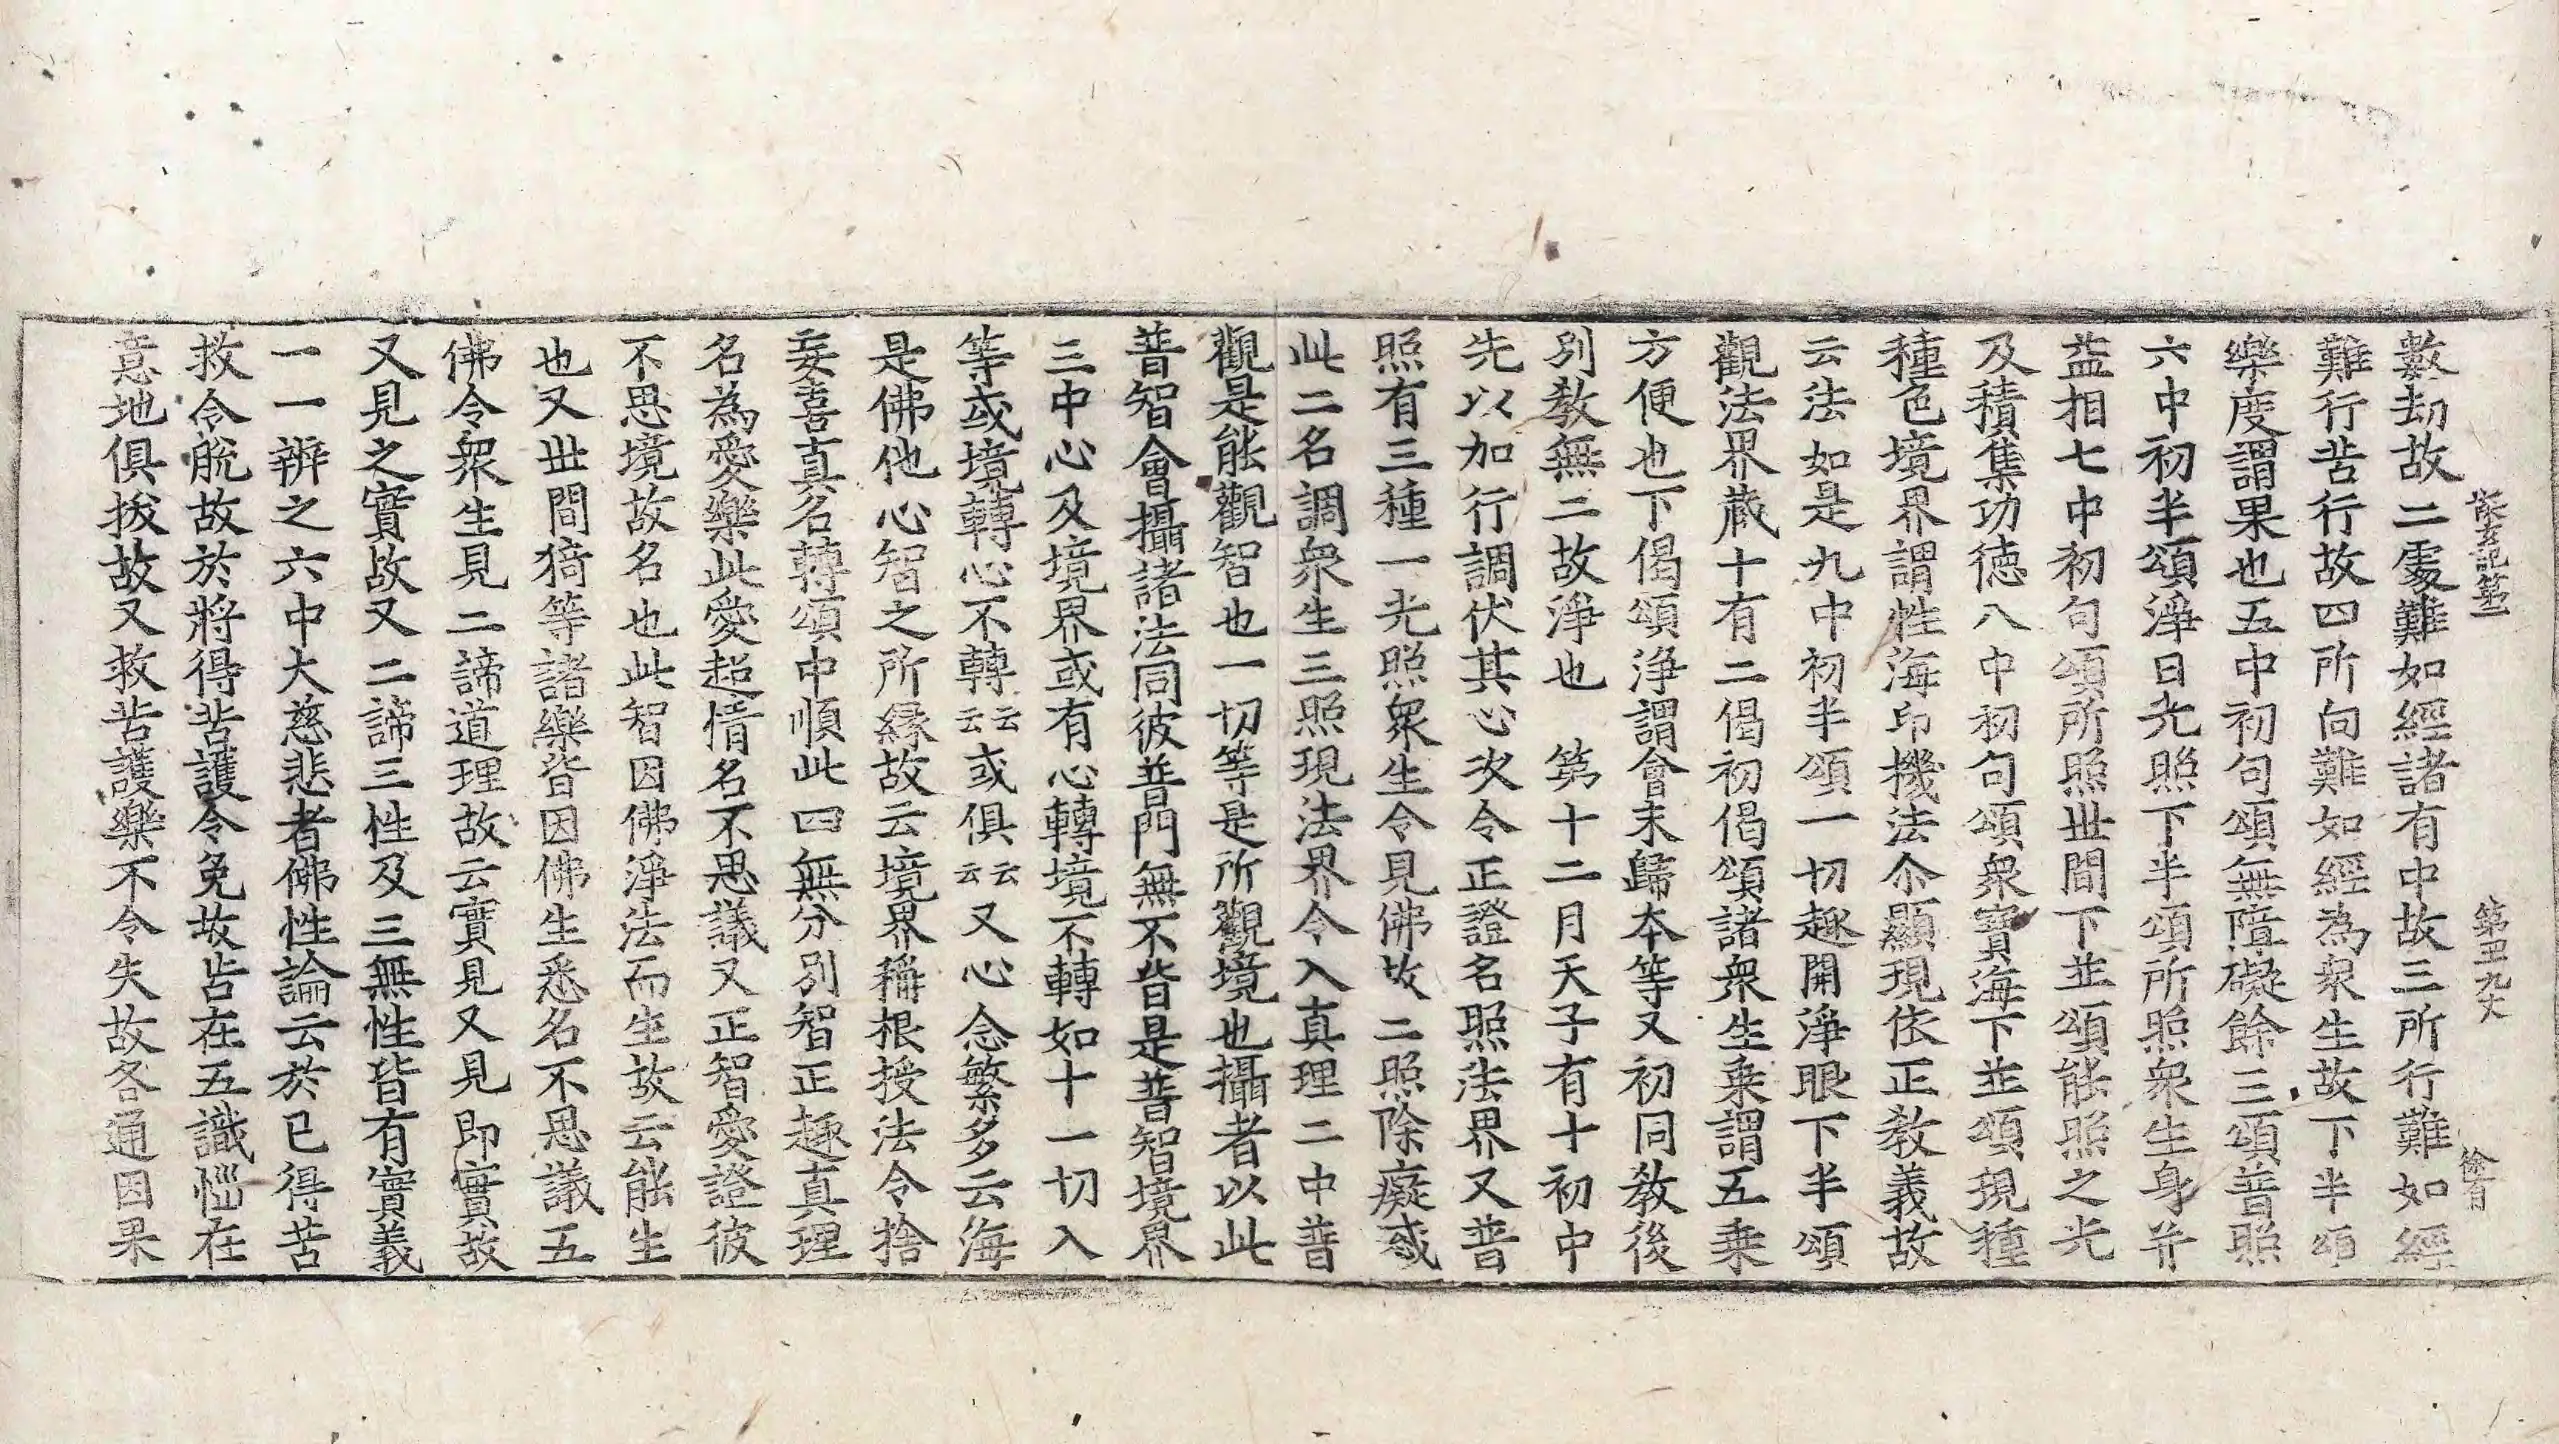 數劫故二處難如經諸有中故三所行難如經
難行苦行故四所向難如經為衆生故下半頌
樂度謂果也五中初句頌無障礙餘三頌普照
六中初半頌淨日光照下半頌所照衆生身并
益相七中初句頌所照世間下並頌能照之光
及積集功德八中初句頌衆寶海下並頌現種
種色境界謂性海印機法尒顯現依正教義故
云法如是九中初半頌一切趣開淨眼下半頌
觀法界藏十有二偈初偈頌諸衆生乗謂五乗
方便也下偈頌淨謂會末歸本等又初同教後
別教無二故淨也　第十二月天子有十初中
先以加行調伏其心次令正證名照法界又普
照有三種一光照衆生令見佛故二照除癡惑
此二名調衆生三照現法界令入真理二中普
觀是能觀智也一切等是所觀境也攝者以此
普智會攝諸法同彼普門無不皆是普智境界
三中心及境界或有心轉境不轉如十一切入
等或境轉心不轉云云或俱云云又心念繁多云海
是佛他心智之所縁故云境界稱根授法令捨
妄喜真名轉頌中順此四無分別智正趣真理
名為愛樂此愛超情名不思議又正智愛證彼
不思境故名也此智因佛淨法而生故云能生
也又世間猗等諸樂皆因佛生悉名不思議五
佛令衆生見二諦道理故云實見又見即實故
又見之實故又二諦三性及三無性皆有實義
一一辨之六中大慈悲者佛性論云於已得苦
救令脫故於將得苦護令免故苦在五識惱在
意地俱拔故又救苦護樂不令失故各通因果